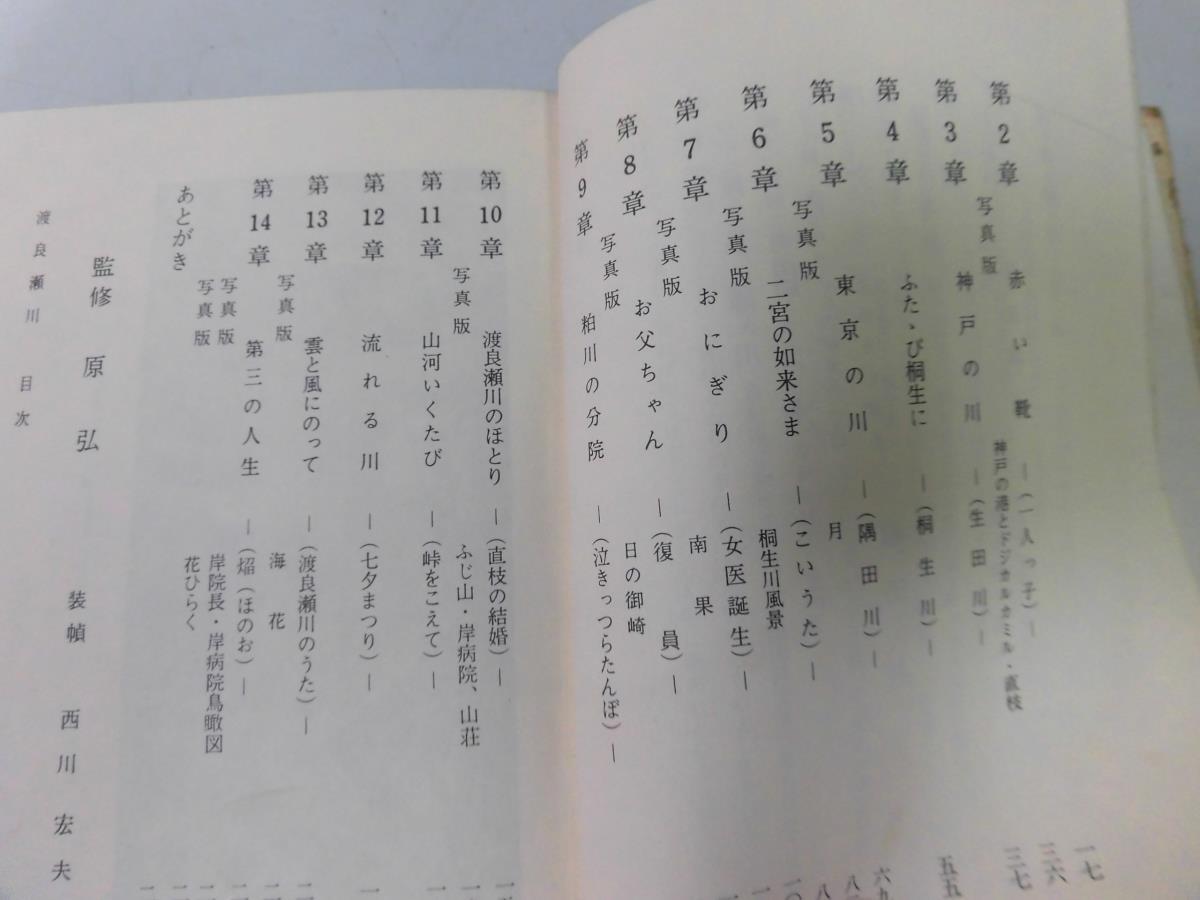 第2章 赤い靴 ―(一人っ子)― 一七
写真版 神戸の港とドジカルカミル・直枝 三六
第3章 神戸の川 ―(生田川)― 三七
第4章 ふたゝび桐生に ―(桐生川)― 五五
第5章 東京の川 ―(隅田川)―
写真版 月
第6章 二宮の如来さま ―(こいうた)―
写真版 桐生川風景
第7章 おにぎり ―(女医誕生)―
写真版 南果
第8章 お父ちゃん ―(復員)―
写真版 日の御崎
第9章 粕川の分院 ―(泣きっつらたんぽ)―
第10章 渡良瀬川のほとり ―(直枝の結婚)―
写真版 ふじ山・岸病院、山荘
第11章 山河いくたび ―(峠をこえて)―
第12章 流れる川 ―(七夕まつり)―
第13章 雲と風にのって ―(渡良瀬川のうた)―
写真版 海花
第14章 第三の人生 ―(焔(ほのお)―
写真版 岸院長・岸病院鳥瞰図
写真版 花ひらく
あとがき
監修 原弘 装幀 西川宏夫
渡良瀬川 目次